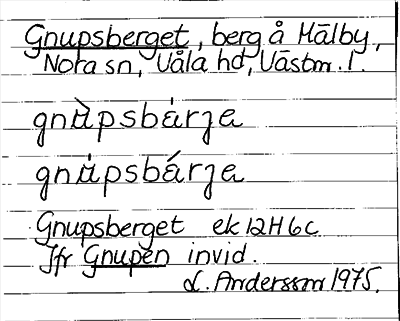 Gnupsberget, berg å Mälby,
Nora sn, Våla hd, Västm. l.
gnùpsbárja
gnúpsbárja
Gnupsberget ek 12H6c
Jfr Gnupen invid.
L. Andersson 1975.